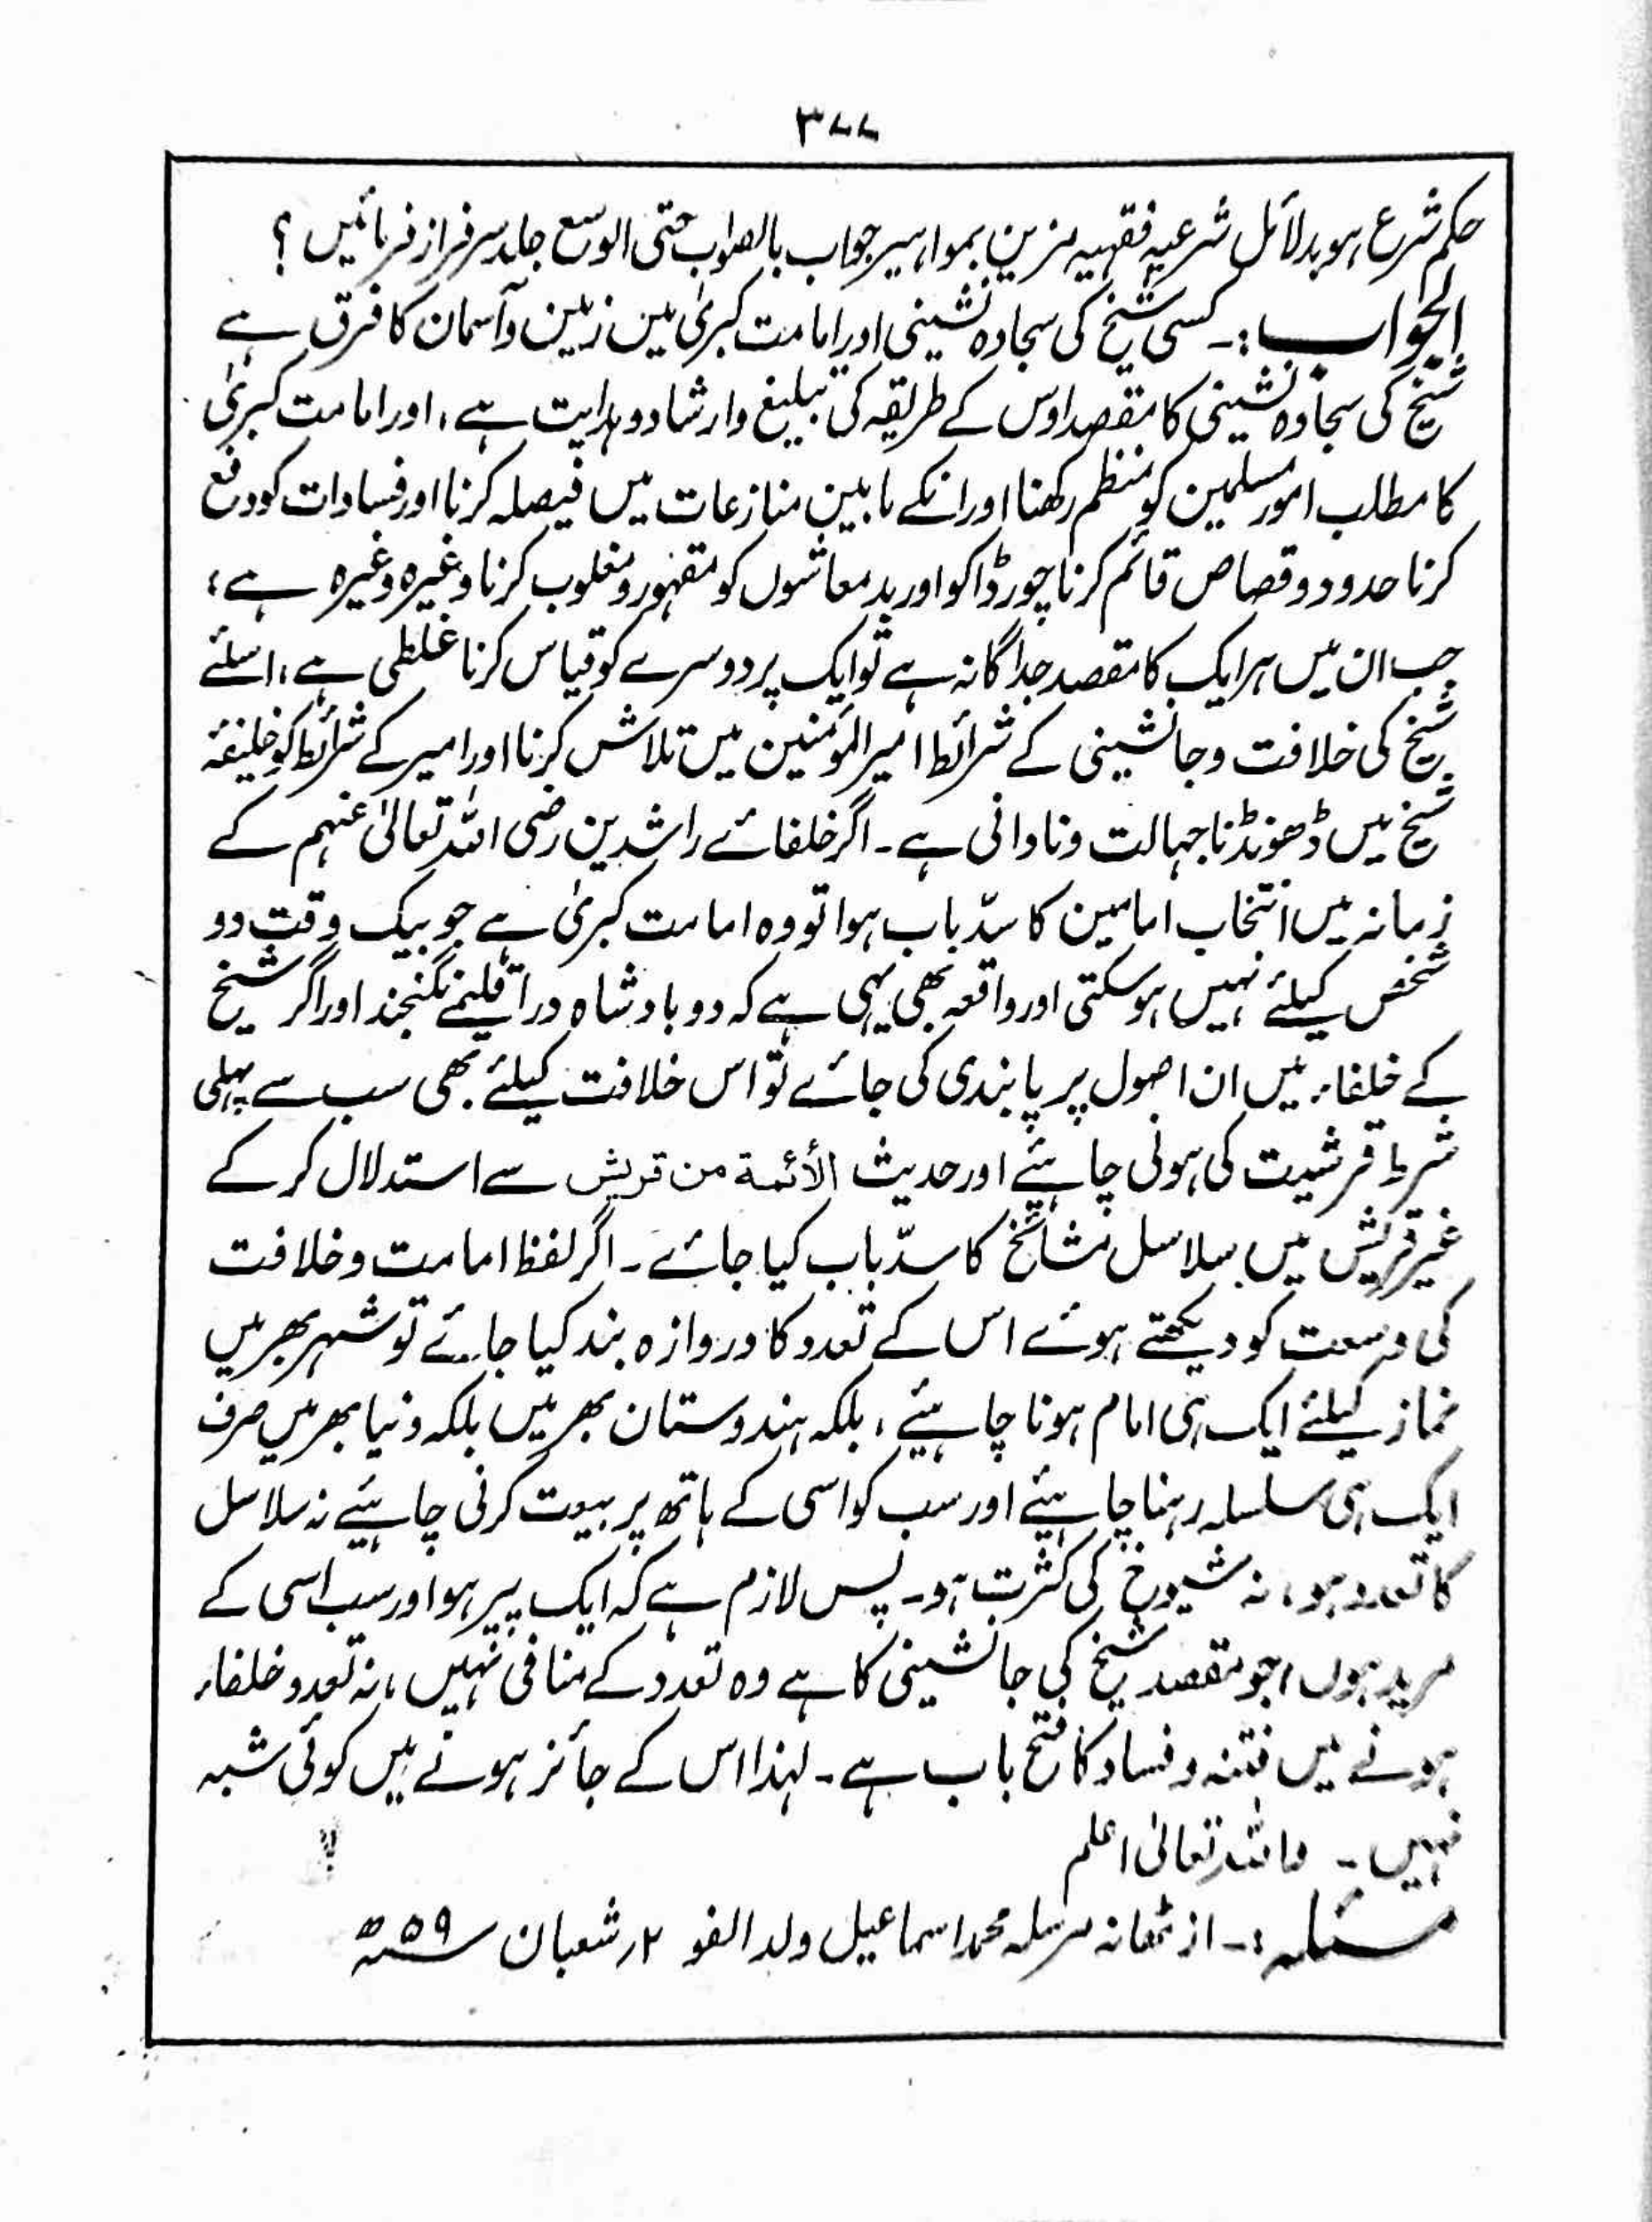 ۳۷۷
حکم شرع ہو بدلائل شرعیہ فقہیہ مزین بمواہیر جواب بالصواب حتی الوسع جلد سرفراز فرمائیں ؟
الجواب :۔ کسی شیخ کی سجادہ نشینی اور امامت کبریٰ میں زمین و آسمان کا فرق ہے
شیخ کی سجادہ نشینی کا مقصد اوس کے طریقہ کی تبلیغ و ارشاد و ہدایت ہے ، اور امامت کبریٰ
کا مطلب امور مسلمین کو منظم رکھنا اور انکے مابین منازعات میں فیصلہ کرنا اور فسادات کو دفع
کرنا حدود و قصاص قائم کرنا چور ڈاکو اور بدمعاشوں کو مقہور و مغلوب کرنا وغیرہ وغیرہ ہے ،
جب ان میں ہر ایک کا مقصد جداگانہ ہے تو ایک پر دوسرے کو قیاس کرنا غلطی ہے ، اسلئے
شیخ کی خلافت و جانشینی کے شرائط امیرالمؤمنین میں تلاش کرنا اور امیر کے شرائط کو خلیفۂ
شیخ میں ڈھونڈنا جہالت و نادانی ہے ۔ اگر خلفائے راشدین رضی اللہ تعالیٰ عنہم کے
زمانہ میں انتخاب امامین کا سدّ باب ہوا تو وہ امامت کبریٰ ہے جو بیک وقت دو
شخص کیلئے نہیں ہوسکتی اور واقعہ بھی یہی ہے کہ دو بادشاہ در اقلیمے نگنجند اور اگر شیخ
کے خلفاء میں ان اصول پر پابندی کی جائے تو اس خلافت کیلئے بھی سب سے پہلی
شرط قرشیت کی ہونی چاہیئے اور حدیث الأئمة من قریش سے استدلال کر کے
غیر قریش میں سلاسل مشائخ کا سدّ باب کیا جائے ۔ اگر لفظ امامت و خلافت
کی وسعت کو دیکھتے ہوئے اس کے تعدد کا دروازہ بند کیا جائے تو شہر بھر میں
نماز کیلئے ایک ہی امام ہونا چاہیئے ، بلکہ ہندوستان بھر میں بلکہ دنیا بھر میں صرف
ایک ہی سلسلہ رہنا چاہیئے اور سب کو اسی کے ہاتھ پر بیعت کرنی چاہیئے نہ سلاسل
کا تعدد ہو ، نہ شیوخ کی کثرت ہو ۔ پس لازم ہے کہ ایک پیر ہو اور سب اسی کے
مرید ہوں ، جو مقصد شیخ کی جانشینی کا ہے وہ تعدد کے منافی نہیں ، نہ تعدد خلفاء
ہونے میں فتنہ و فساد کا فتح باب ہے ۔ لہٰذا اس کے جائز ہونے میں کوئی شبہ
نہیں ۔ واللہ تعالیٰ اعلم
مسئلہ :۔ از تھانہ مرسلہ محمد اسماعیل ولد الفو ۲ ر شعبان ۵۹ھ